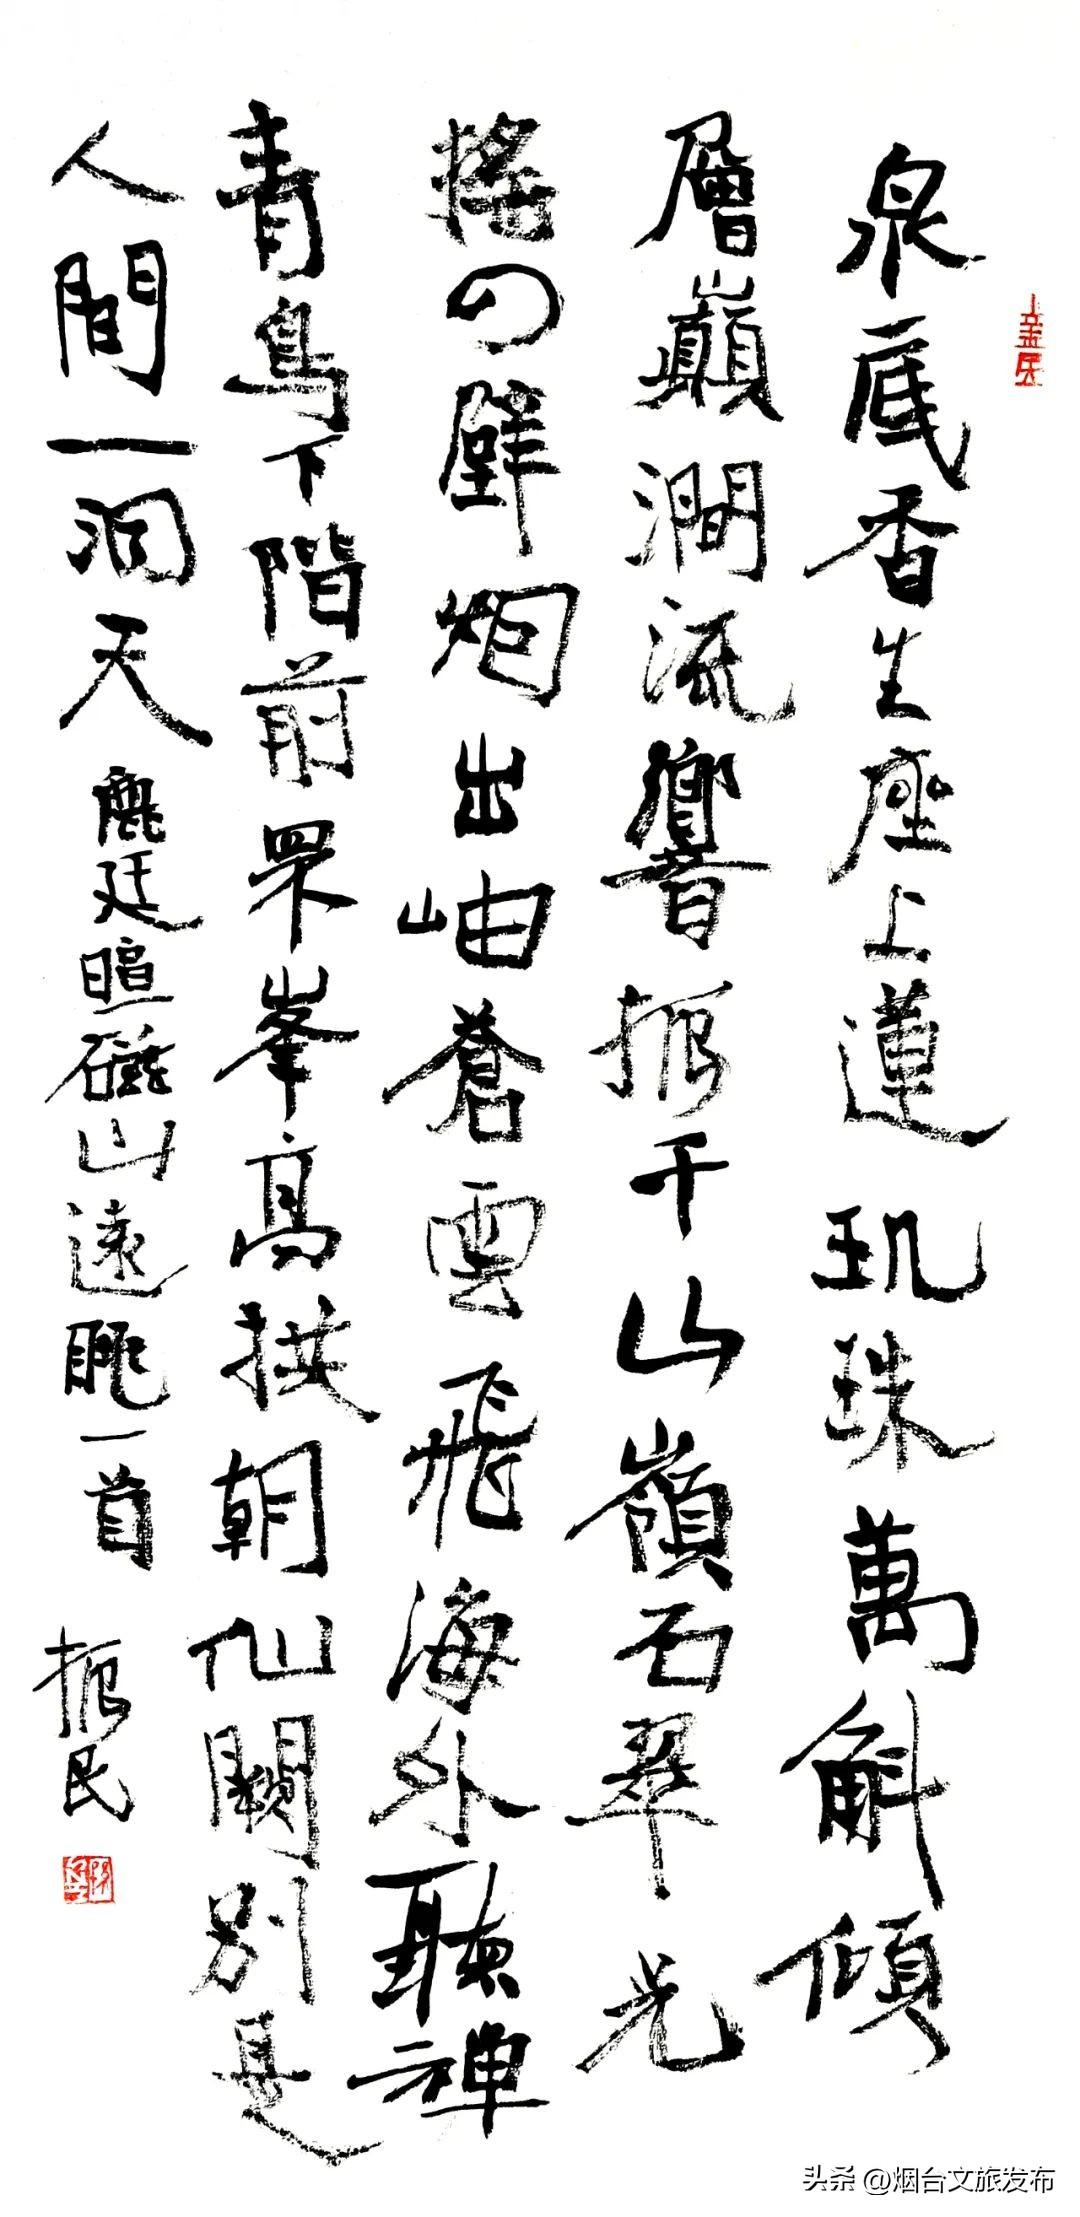 泉底香生座上蓮玑珠萬斛傾
層巔澗流響振千山嶺石翠光
搖四壁烟出岫蒼雲飛海外聽禪
青鳥下階前罘峯高拱朝仙闕別是
人間一洞天 鹿廷暄磁山遠眺一首 振民
头条 @烟台文旅发布